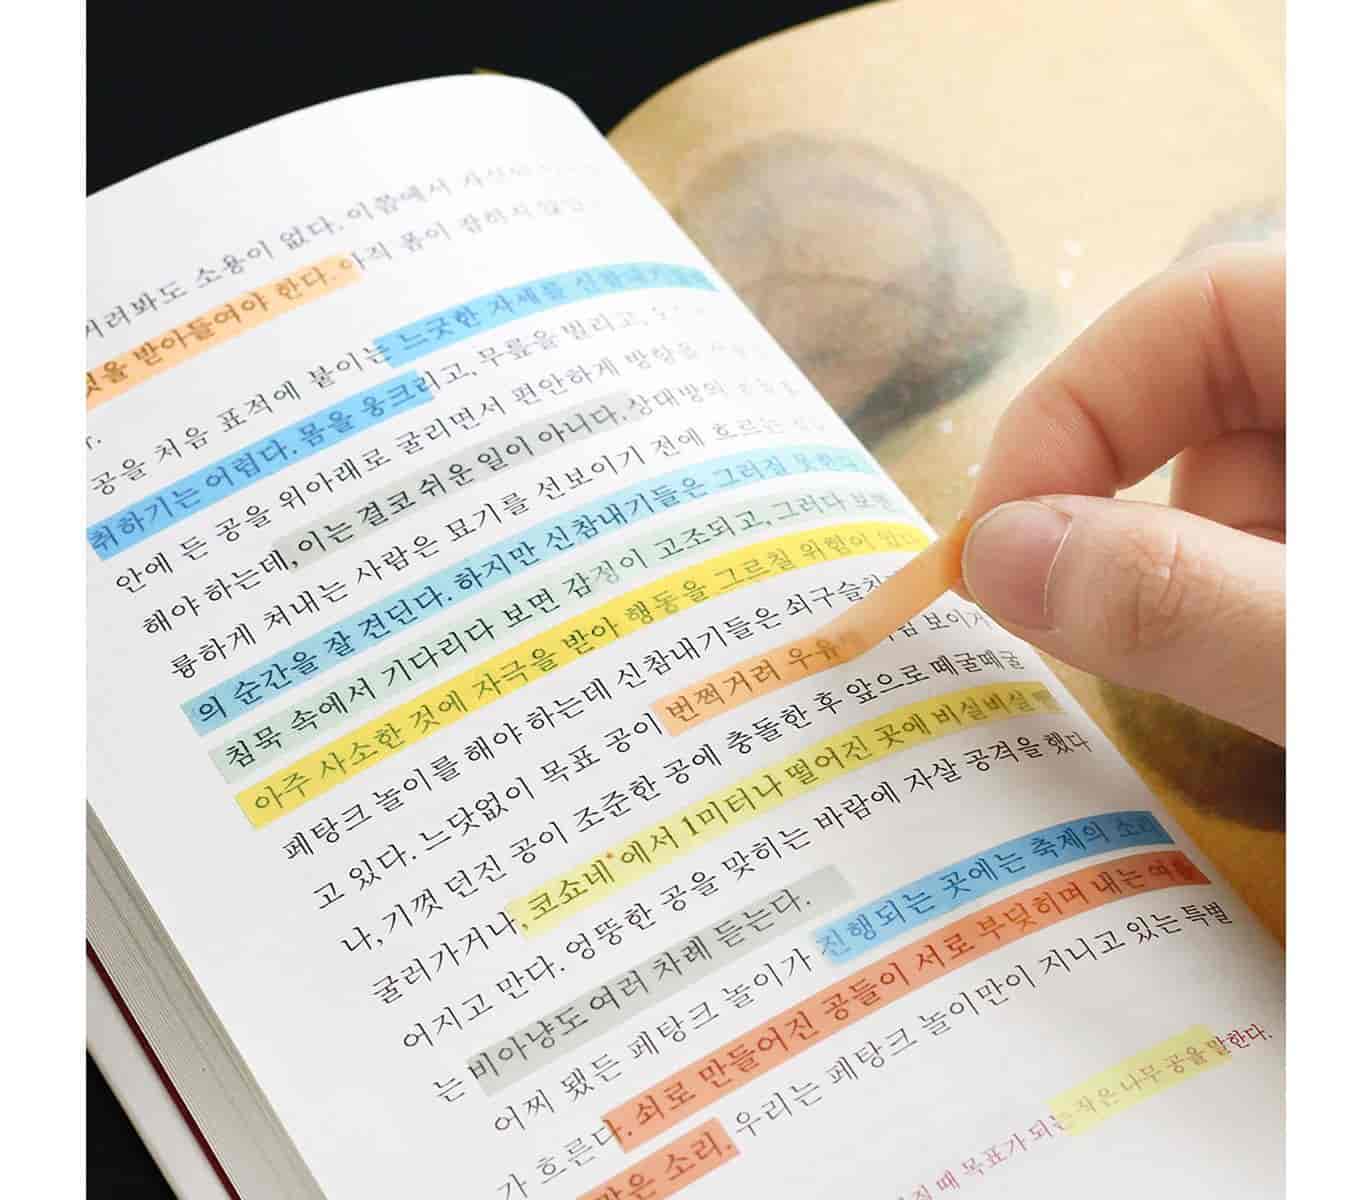 거려봐도 소용이 없다. 이쯤에서
것을 받아들여야 한다. 아직 몸이 잡히지
공을 처음 표적에 붙이는 느긋한 자세를 신참내기
취하기는 어렵다. 몸을 웅크리고, 무릎을 벌리고,
안에 든 공을 위아래로 굴리면서 편안하게 방향을
해야 하는데, 이는 결코 쉬운 일이 아니다. 상대방의
륭하게 쳐내는 사람은 묘기를 선보이기 전에 흐르는
의 순간을 잘 견딘다. 하지만 신참내기들은 그러질 못한다
침묵 속에서 기다리다 보면 감정이 고조되고, 그러다 보면
아주 사소한 것에 자극을 받아 행동을 그르칠 위험이 있다
페탕크 놀이를 해야 하는데 신참내기들은 쇠구슬치
고 있다. 느닷없이 목표 공이 번쩍거려 우유 보이거
나, 기껏 던진 공이 조준한 공에 충돌한 후 앞으로 떼굴떼굴
굴러가거나, 코쇼네*에서 1미터나 떨어진 곳에 비실비실
어지고 만다. 엉뚱한 공을 맞히는 바람에 자살 공격을 했다
는 비아냥도 여러 차례 듣는다.
어찌 됐든 페탕크 놀이가 진행되는 곳에는 축제의 소리
가 흐른다. 쇠로 만들어진 공들이 서로 부딪히며 내는
맑은 소리. 우리는 페탕크 놀이만이 지니고 있는 특별
때 목표가 되는 작은 나무 공을 말한다.